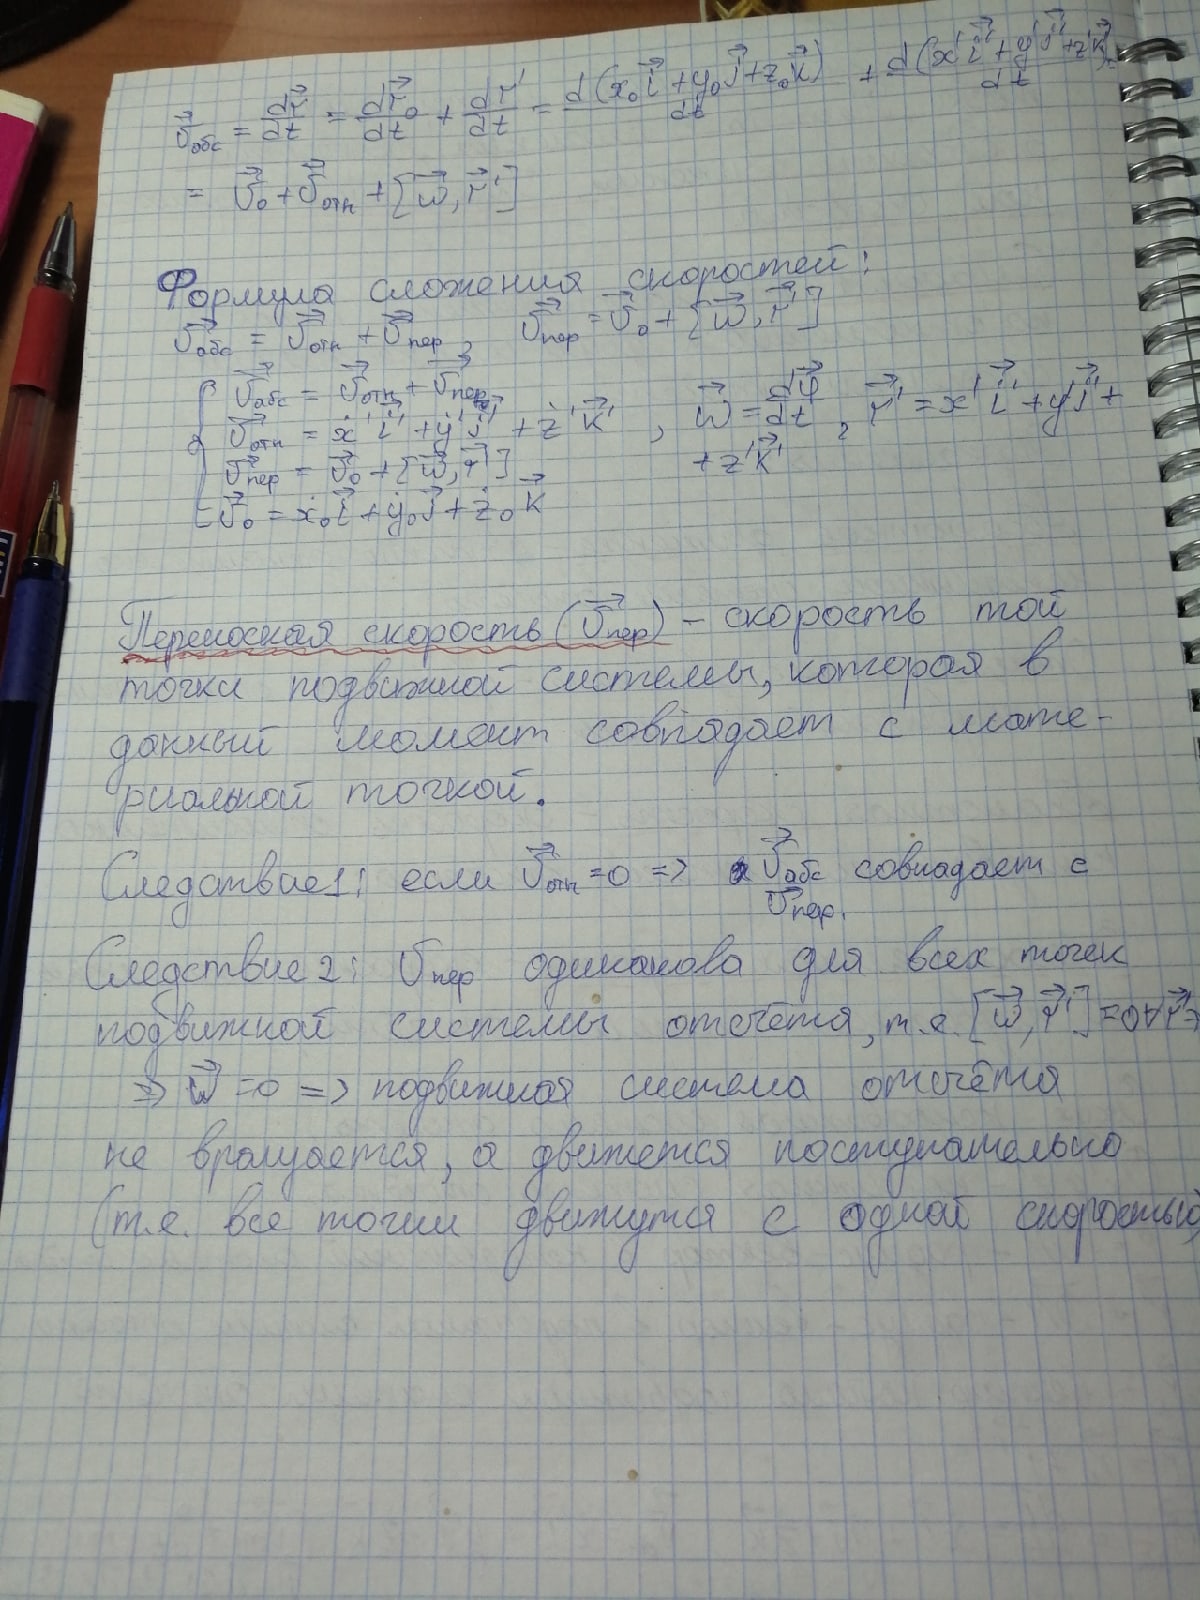 v⃗абс = dr⃗/dt = dr⃗₀/dt + dr⃗'/dt = d(x₀i⃗ + y₀j⃗ + z₀k⃗)/dt + d(x'i⃗' + y'j⃗' + z'k⃗')/dt =
= v⃗₀ + v⃗отн + [w⃗, r⃗']
Формула сложения скоростей:
v⃗абс = v⃗отн + v⃗пер, v⃗пер = v⃗₀ + [w⃗, r⃗']
v⃗абс = v⃗отн + v⃗пер
v⃗отн = ẋ'i⃗' + ẏ'j⃗' + ż'k⃗', w⃗ = dφ⃗/dt, r⃗' = x'i⃗' + y'j⃗' +
v⃗пер = v⃗₀ + [w⃗, r⃗'] + z'k⃗'
v⃗₀ = ẋ₀i⃗ + ẏ₀j⃗ + ż₀k⃗
Переносная скорость (v⃗пер) – скорость той
точки подвижной системы, которая в
данный момент совпадает с мате-
риальной точкой.
Следствие 1: если v⃗отн = 0 => v⃗абс совпадает с
v⃗пер.
Следствие 2: vпер одинакова для всех точек
подвижной системы отсчёта, т.е. [w⃗, r⃗'] = 0 ∀ r⃗' =>
=> w⃗ = 0 => подвижная система отсчёта
не вращается, а движется поступательно
(т.е. все точки движутся с одной скоростью)